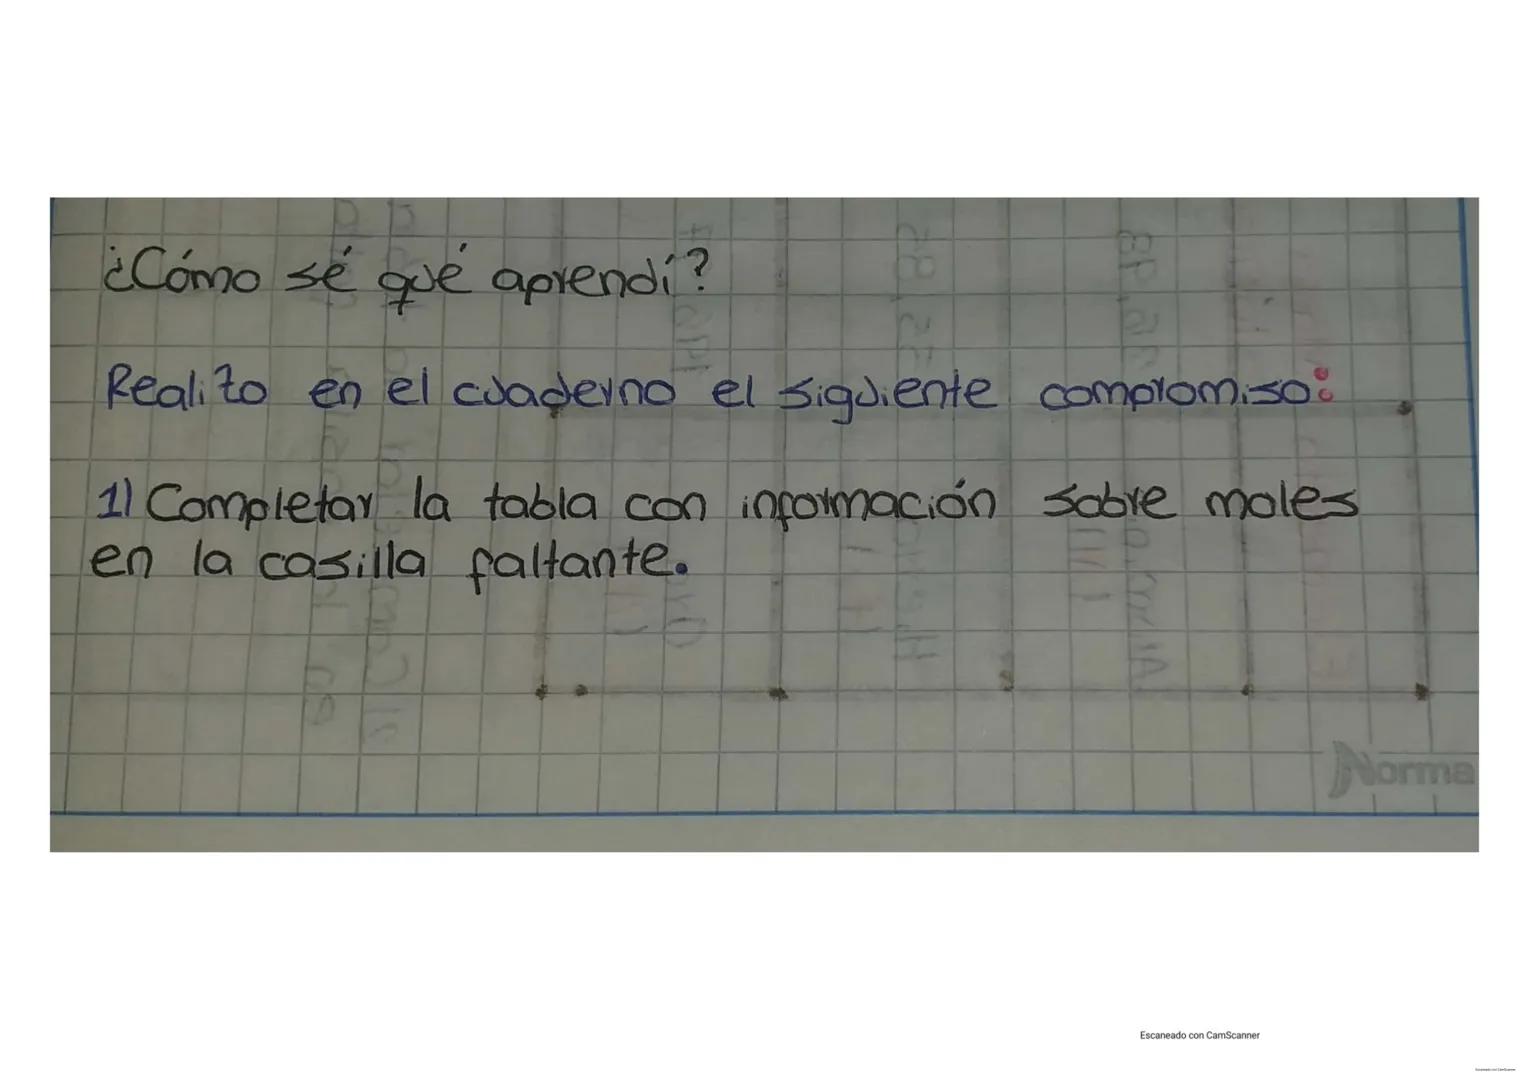 ¿Cómo sé qué aprendí?
Realizo en el cuaderno el siguiente compromiso:
1) Completar la tabla con información sobre moles
en la casilla faltante.
Norma
Escaneado con CamScanner
Escaneado con CamScanner